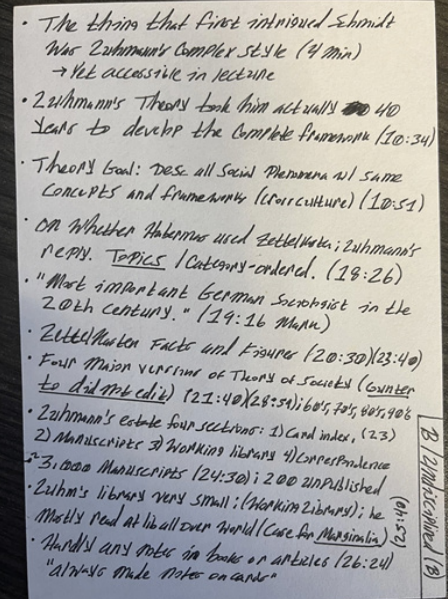 • The thing that first intrigued Schmidt
was Luhmann's complex style (4 min)
→ Yet accessible in lecture
• Luhmann's Theory took him actually 40
years to develop the complete framework (10:34)
• Theory Goal: Desc all Social Phenomena w/ same
concepts and frameworks (cross culture) (10:51)
• On Whether Habermas used Zettelkasten; Luhmann's
reply. Topics / Category-ordered. (18:26)
• "Most important German Sociologist in the
20th century." (19:16 Manu)
• Zettelkasten Facts and Figures (20:30)(23:40)
• Four major versions of Theory of Society (Gunter
to did not edit) (21:40)(28:59); 60's, 70's, 80's, 90's
• Luhmann's estate four sections: 1) Card index, (23)
2) Manuscripts 3) Working library 4) Correspondence
• 3,000 Manuscripts (24:30); 200 unpublished
• Luhm's library very small; (Working Library); he
Mostly read at lib all over World (Case for Marginalia) (25:40)
• Hardly any notes in books or articles (26:24)
"always made notes on cards"
B) Undisciplined (B)